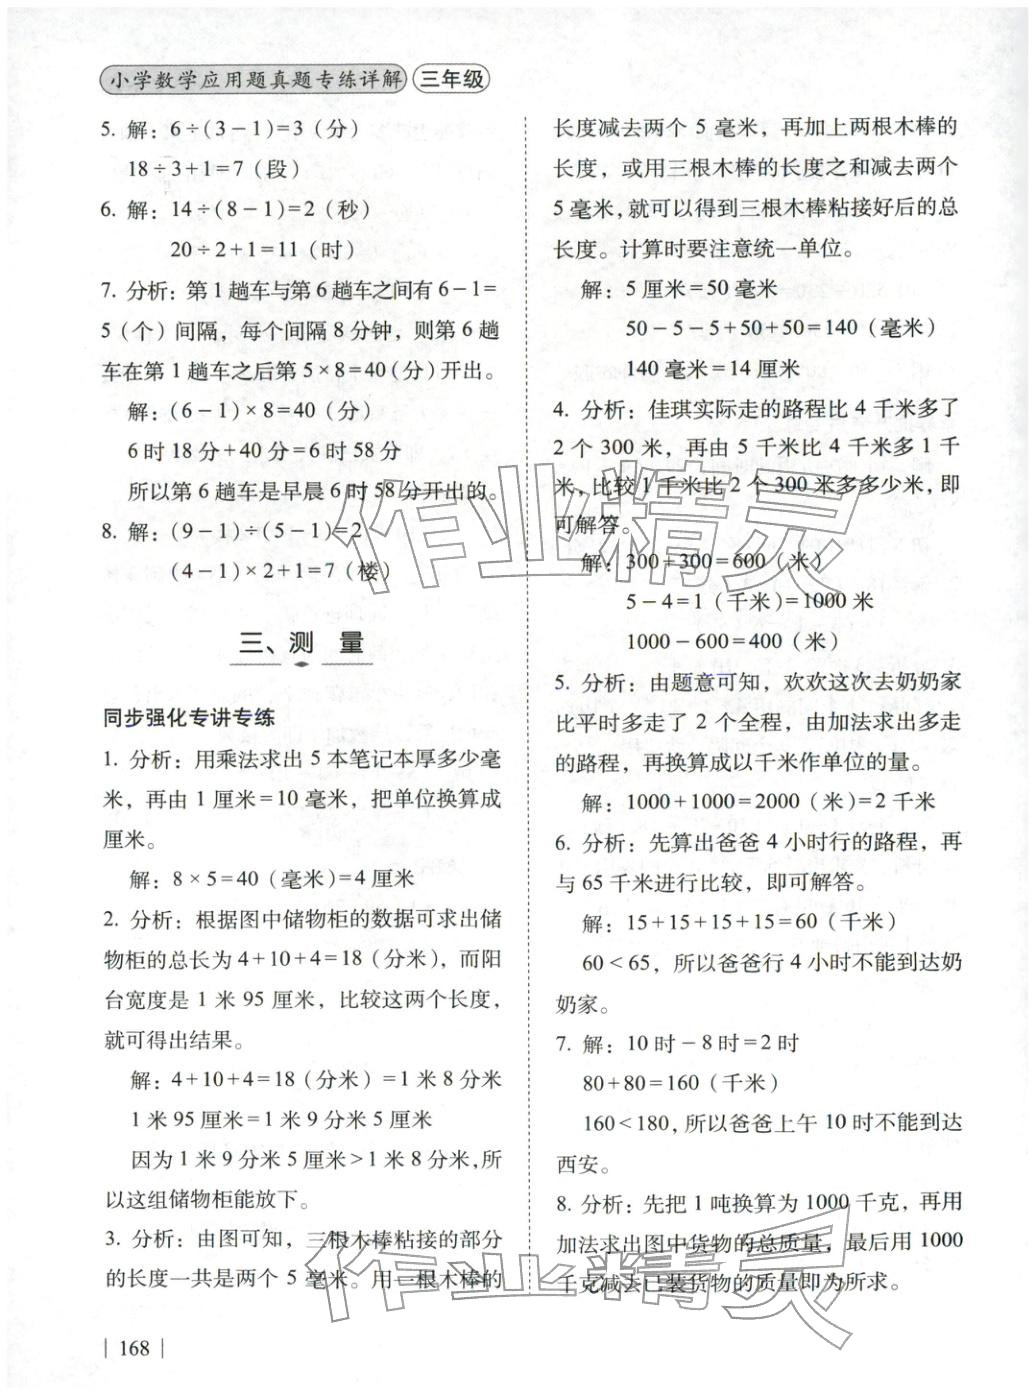 小学数学应用题真题专练详解 三年级
5. 解：6÷(3－1)=3（分）
18÷3+1=7（段）
6. 解：14÷(8－1)=2（秒）
20÷2+1=11（时）
7. 分析：第1趟车与第6趟车之间有6－1=
5（个）间隔，每个间隔8分钟，则第6趟
车在第1趟车之后第5×8=40(分)开出。
解：(6－1)×8=40（分）
6时18分+40分=6时58分
所以第6趟车是早晨6时58分开出的。
8. 解：(9－1)÷(5－1)=2
(4－1)×2+1=7（楼）
三、测 量
同步强化专讲专练
1. 分析：用乘法求出5本笔记本厚多少毫
米，再由1厘米=10毫米，把单位换算成
厘米。
解：8×5=40（毫米)=4厘米
2. 分析：根据图中储物柜的数据可求出储
物柜的总长为4+10+4=18（分米），而阳
台宽度是1米95厘米，比较这两个长度，
就可得出结果。
解：4+10+4=18（分米）=1米8分米
1米95厘米=1米9分米5厘米
因为1米9分米5厘米>1米8分米,所
以这组储物柜能放下。
3. 分析：由图可知，三根木棒粘接的部分
的长度一共是两个5毫米。用一根木棒的
168
长度减去两个5毫米，再加上两根木棒的
长度，或用三根木棒的长度之和减去两个
5毫米,就可以得到三根木棒粘接好后的总
长度。计算时要注意统一单位。
解：5厘米=50毫米
50－5－5+50+50=140（毫米）
140毫米=14厘米
4. 分析：佳琪实际走的路程比4千米多了
2个300米，再由5千米比4千米多1千
米，比较1千米比2个300米多多少米，即
可解答。
解：300+300=600（米）
5－4=1（千米)=1000米
1000－600=400（米）
5. 分析：由题意可知，欢欢这次去奶奶家
比平时多走了2个全程，由加法求出多走
的路程，再换算成以千米作单位的量。
解：1000+1000=2000（米)=2千米
6. 分析：先算出爸爸4小时行的路程，再
与65千米进行比较，即可解答。
解：15+15+15+15=60（千米）
60<65，所以爸爸行4小时不能到达奶
奶家。
7. 解：10时－8时=2时
80+80=160（千米）
160<180,所以爸爸上午10时不能到达
西安。
8. 分析：先把1吨换算为1000千克，再用
加法求出图中货物的总质量，最后用1000
千克减去已装货物的质量即为所求。
作业精灵
作业精灵